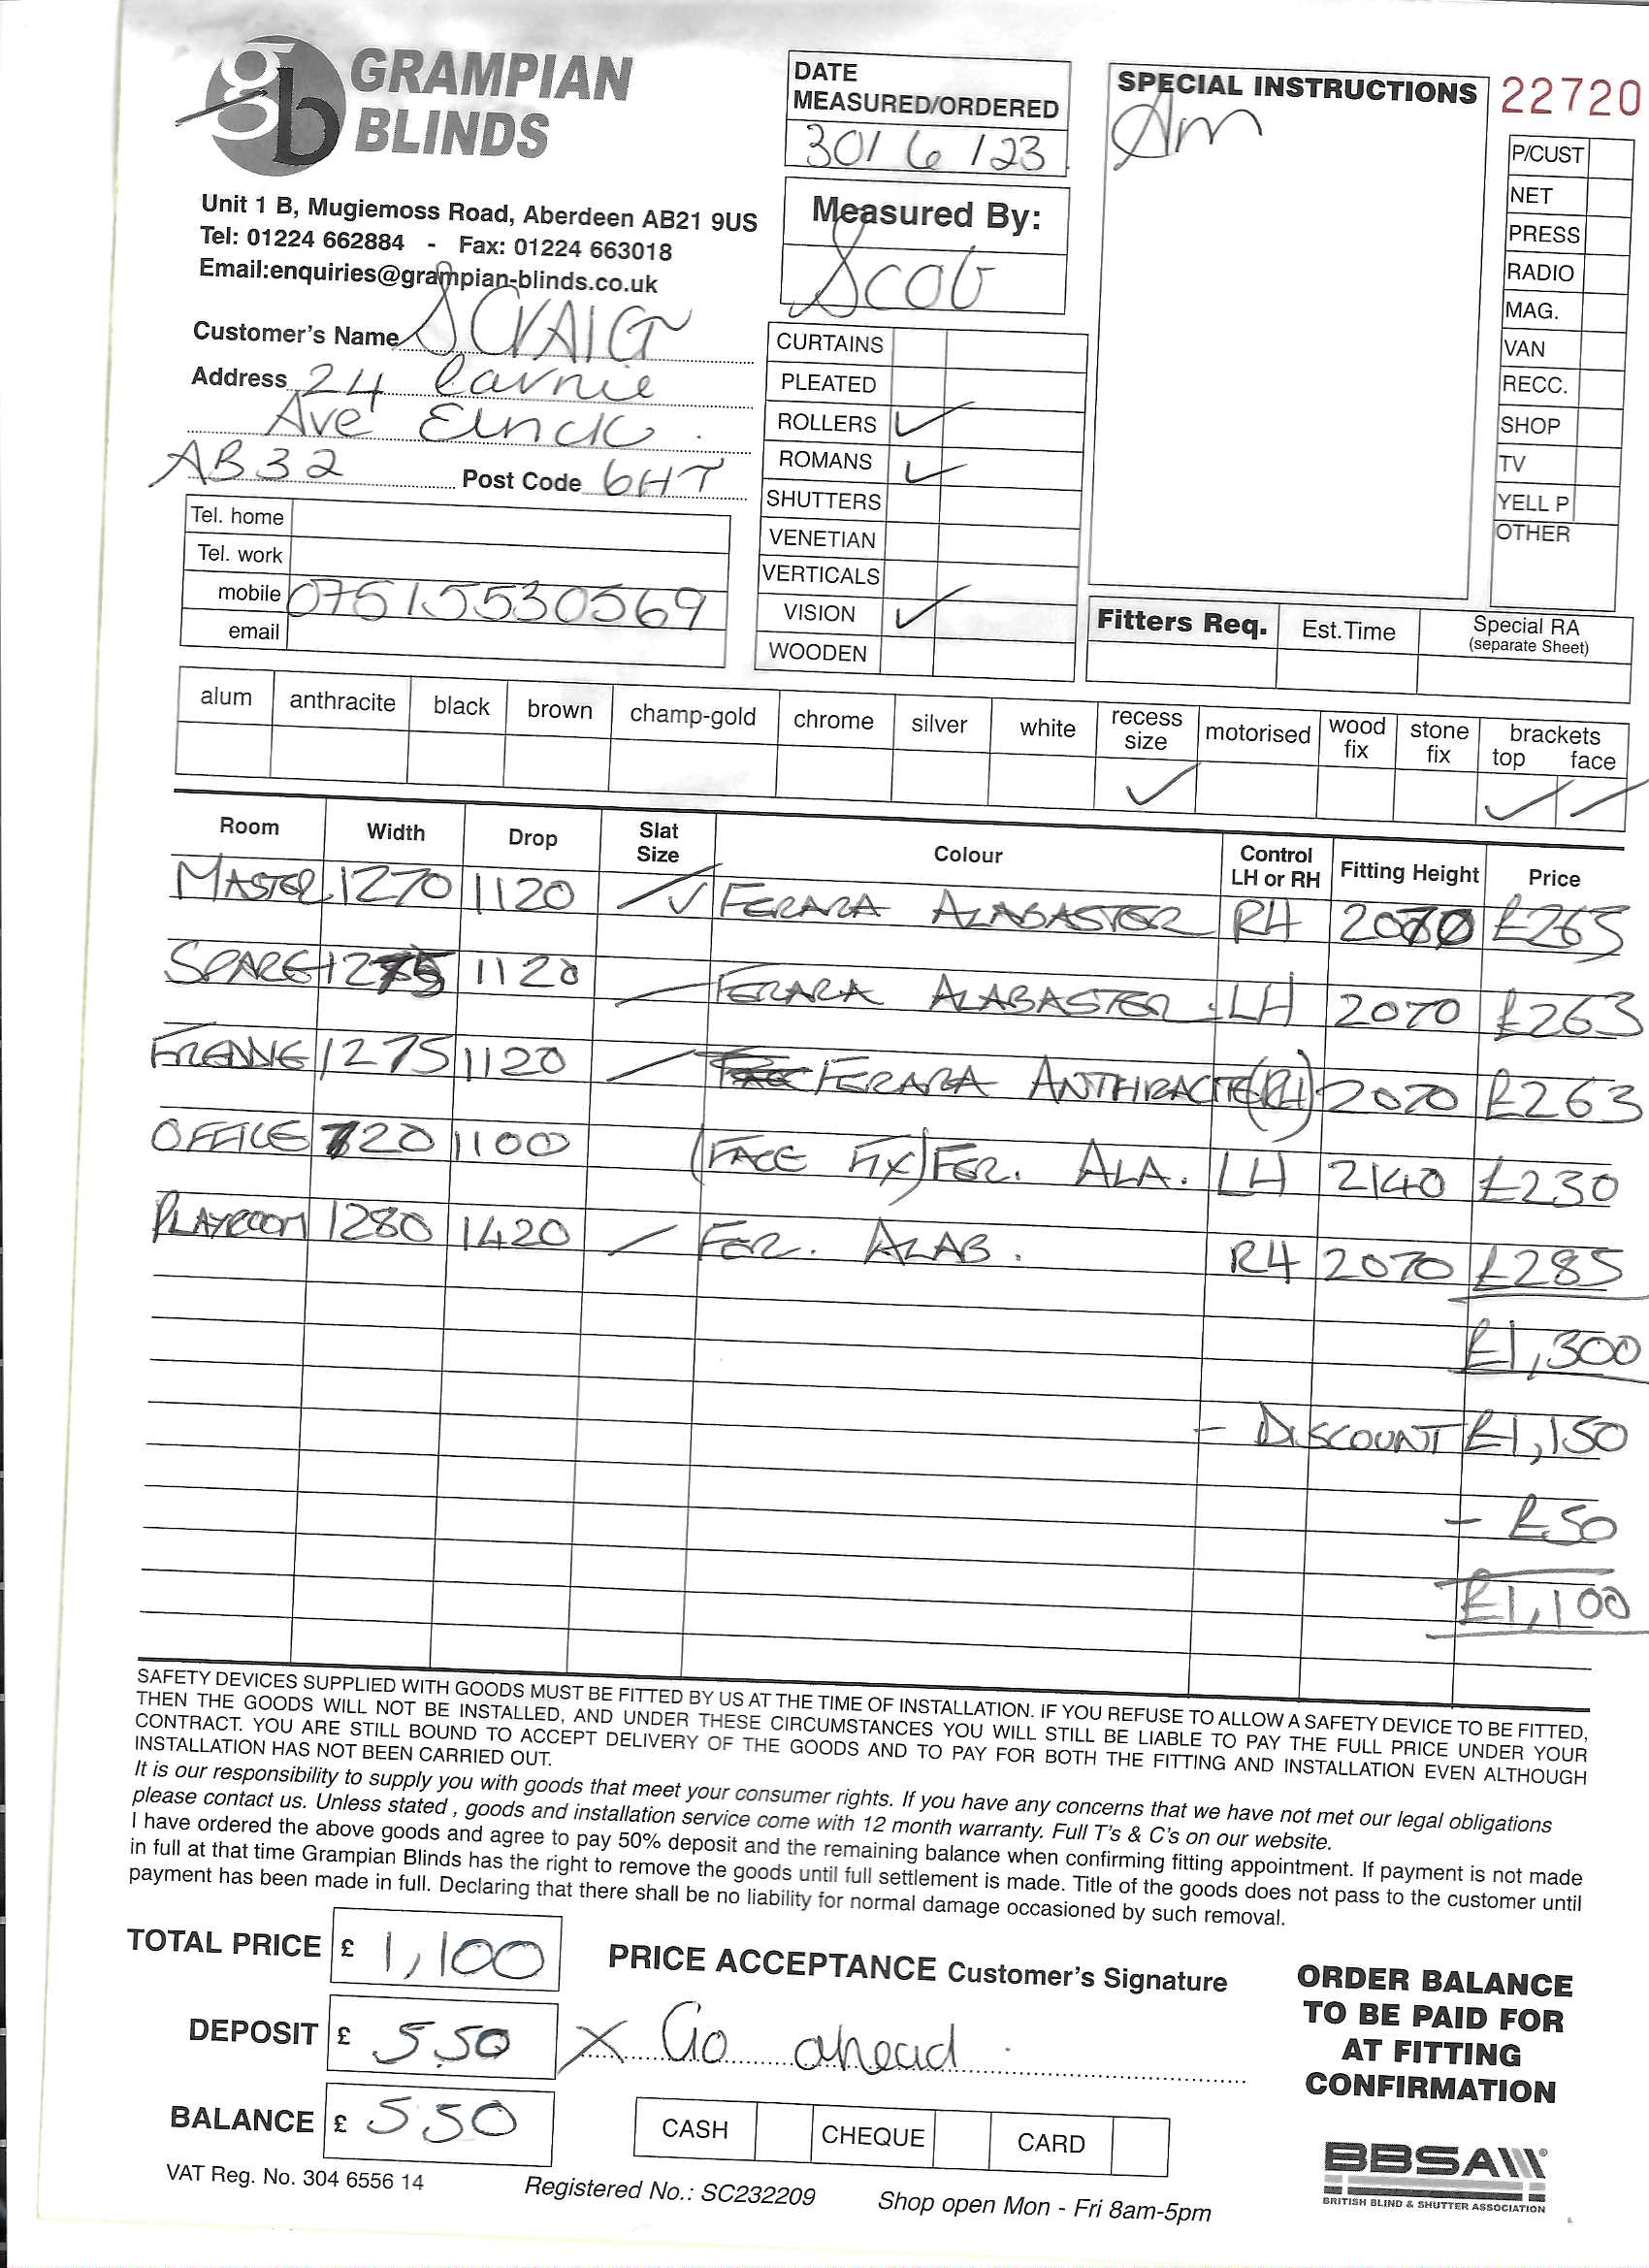 gb GRAMPIAN BLINDS
Unit 1 B, Mugiemoss Road, Aberdeen AB21 9US
Tel: 01224 662884 - Fax: 01224 663018
Email:enquiries@grampian-blinds.co.uk
Customer's Name SCRAIG
Address 24 Carnie
Ave Elrick
AB32 Post Code 6HT
Tel. home
Tel. work
mobile 07515530569
email
DATE
MEASURED/ORDERED
30/6/23
Measured By:
CURTAINS
PLEATED
ROLLERS ✓
ROMANS ✓
SHUTTERS
VENETIAN
VERTICALS
VISION ✓
WOODEN
SPECIAL INSTRUCTIONS
Am
22720
P/CUST
NET
PRESS
RADIO
MAG.
VAN
RECC.
SHOP
TV
YELL P
OTHER
Fitters Req. Est.Time Special RA
(separate Sheet)
alum anthracite black brown champ-gold chrome silver white recess size ✓ motorised wood fix stone fix brackets top ✓ face ✓
Room Width Drop Slat Size Colour Control LH or RH Fitting Height Price
MASTER 1270 1120 FERARA ALABASTER RH 2070 £265
SPARE 1275 1120 FERARA ALABASTER LH 2070 £263
1275 1120 FERARA ANTHRACITE (RH) 2070 £263
OFFICE 720 1100 (FACE FIX) FER. ALA. LH 2140 £230
PLAYROOM 1280 1420 FER. ALAB. RH 2070 £285
£1,300
- DISCOUNT £1,150
- £50
£1,100
SAFETY DEVICES SUPPLIED WITH GOODS MUST BE FITTED BY US AT THE TIME OF INSTALLATION. IF YOU REFUSE TO ALLOW A SAFETY DEVICE TO BE FITTED,
THEN THE GOODS WILL NOT BE INSTALLED, AND UNDER THESE CIRCUMSTANCES YOU WILL STILL BE LIABLE TO PAY THE FULL PRICE UNDER YOUR
CONTRACT. YOU ARE STILL BOUND TO ACCEPT DELIVERY OF THE GOODS AND TO PAY FOR BOTH THE FITTING AND INSTALLATION EVEN ALTHOUGH
INSTALLATION HAS NOT BEEN CARRIED OUT.
It is our responsibility to supply you with goods that meet your consumer rights. If you have any concerns that we have not met our legal obligations
please contact us. Unless stated , goods and installation service come with 12 month warranty. Full T's & C's on our website.
I have ordered the above goods and agree to pay 50% deposit and the remaining balance when confirming fitting appointment. If payment is not made
in full at that time Grampian Blinds has the right to remove the goods until full settlement is made. Title of the goods does not pass to the customer until
payment has been made in full. Declaring that there shall be no liability for normal damage occasioned by such removal.
TOTAL PRICE £ 1,100
DEPOSIT £ 550
BALANCE £ 550
PRICE ACCEPTANCE Customer's Signature
X Go ahead
CASH CHEQUE CARD
ORDER BALANCE
TO BE PAID FOR
AT FITTING
CONFIRMATION
BBSA
BRITISH BLIND & SHUTTER ASSOCIATION
VAT Reg. No. 304 6556 14
Registered No.: SC232209
Shop open Mon - Fri 8am-5pm